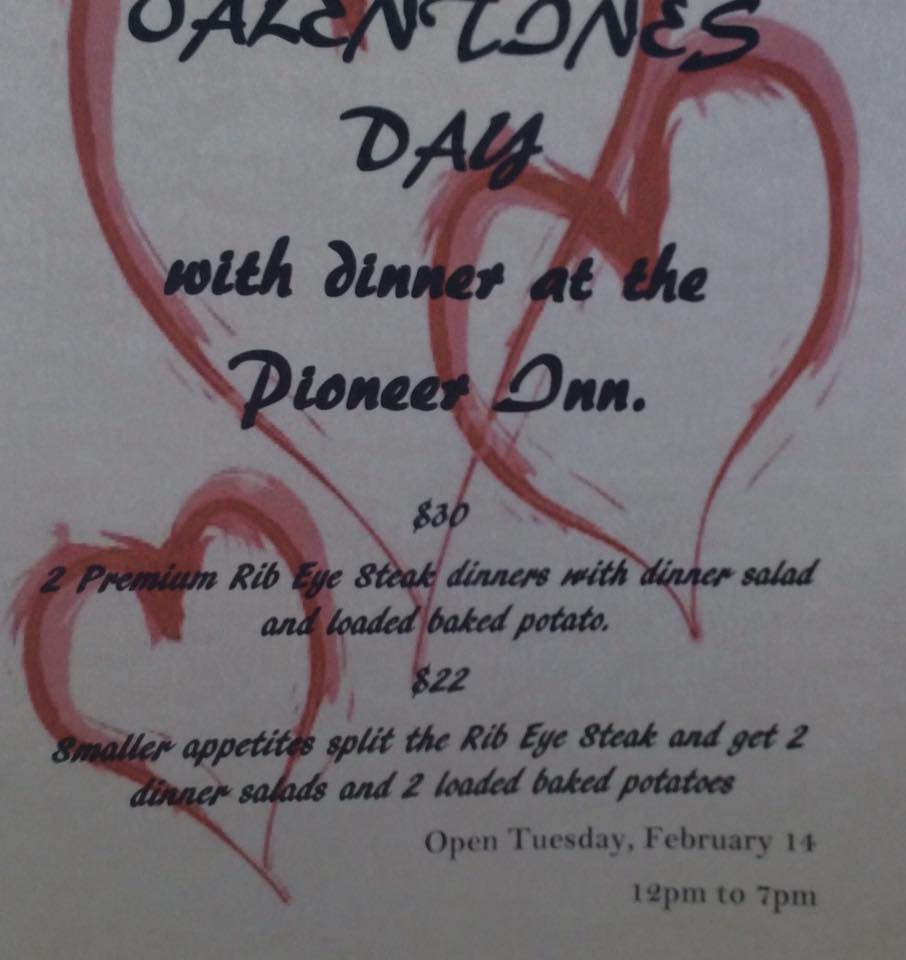 VALENTINES
DAY
with dinner at the
Pioneer Inn.
$30
2 Premium Rib Eye Steak dinners with dinner salad
and loaded baked potato.
$22
Smaller appetites split the Rib Eye Steak and get 2
dinner salads and 2 loaded baked potatoes
Open Tuesday, February 14
12pm to 7pm